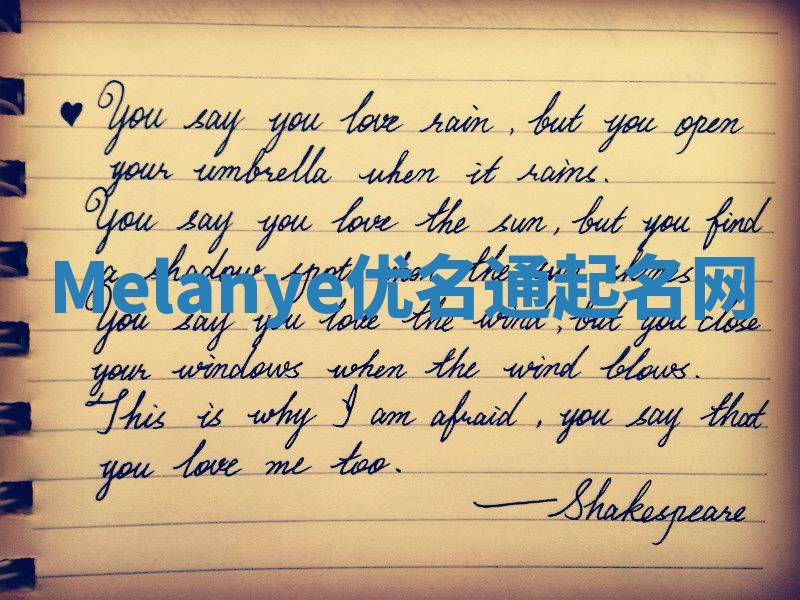 ♥ You say you love rain, but you open
your umbrella when it rains.
You say you love the sun, but you find
a shadow spot when the sun shines
Melanye优名通起名网
You say you love the wind, but you close
your windows when the wind blows.
This is why I am afraid, you say that
you love me too.
— Shakespeare